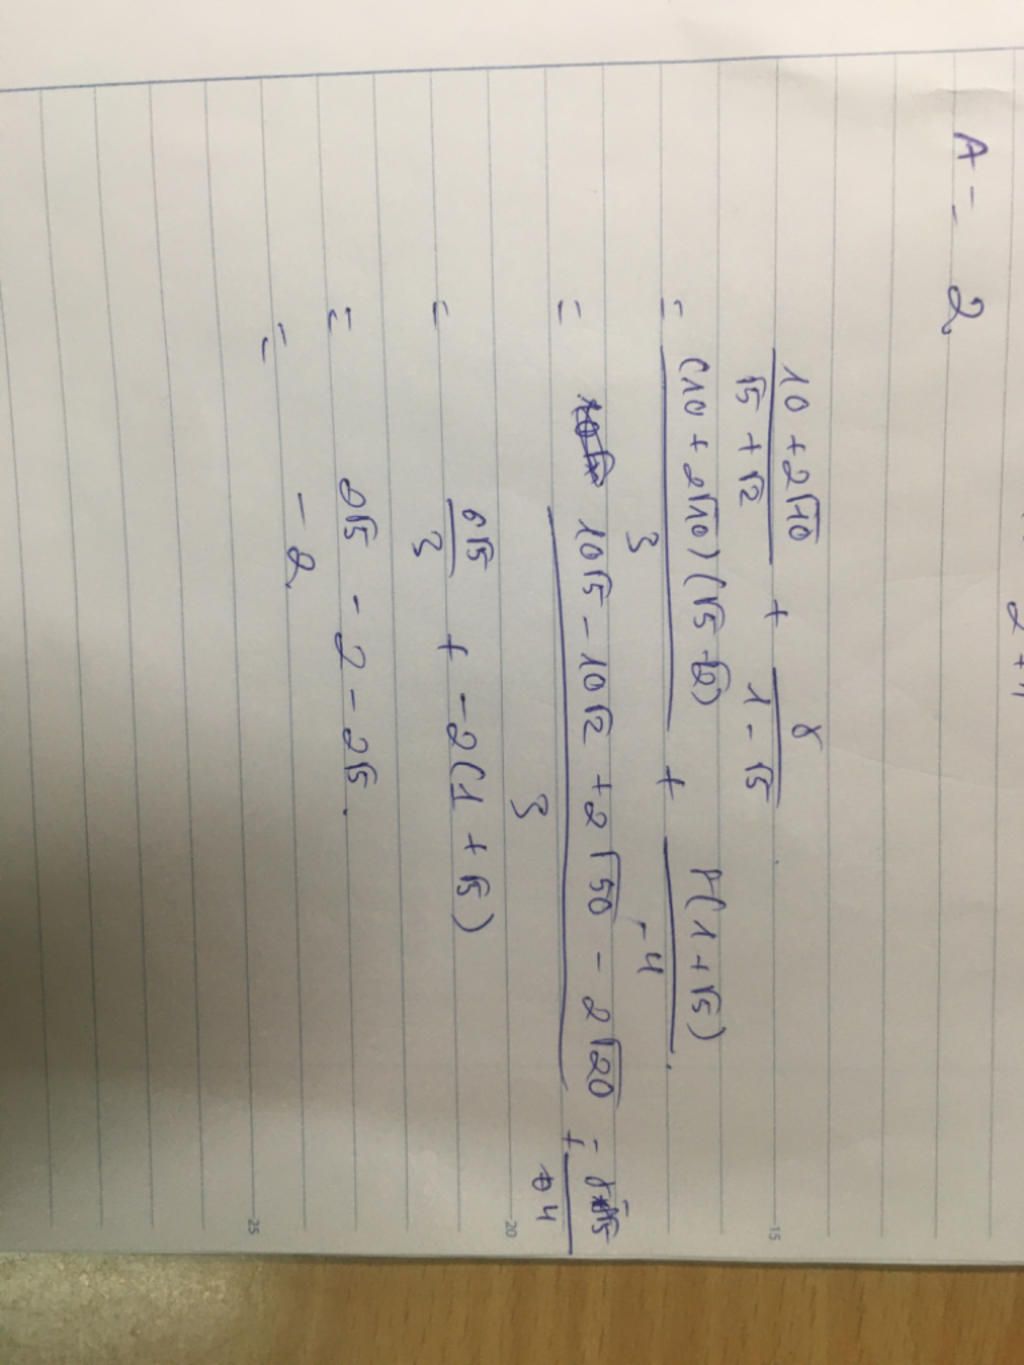 2+1
A = 2
10 + 2√10 / √5 + √2 + 8 / 1 - √5
= (10 + 2√10)(√5 - √2) / 3 + 8(1 + √5) / -4
= 10√5 - 10√2 + 2√50 - 2√20 / 3
= 6√5 / 3 + -2(1 + √5)
= 2√5 - 2 - 2√5.
= -2
15
20
25